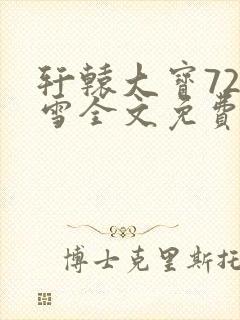 轩辕大寶72
雪全文免費
博士克里斯托